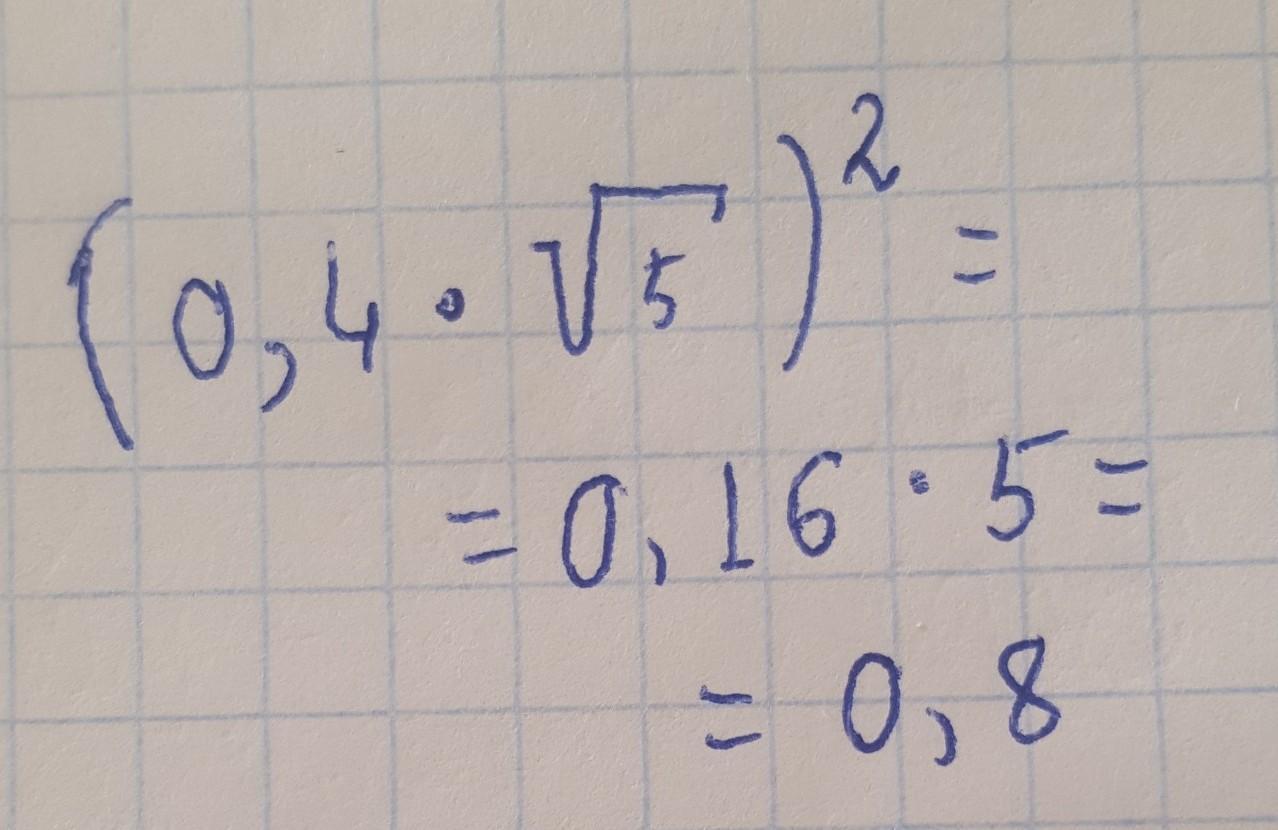 (0,4 · √5)² =
= 0,16 · 5 =
= 0,8